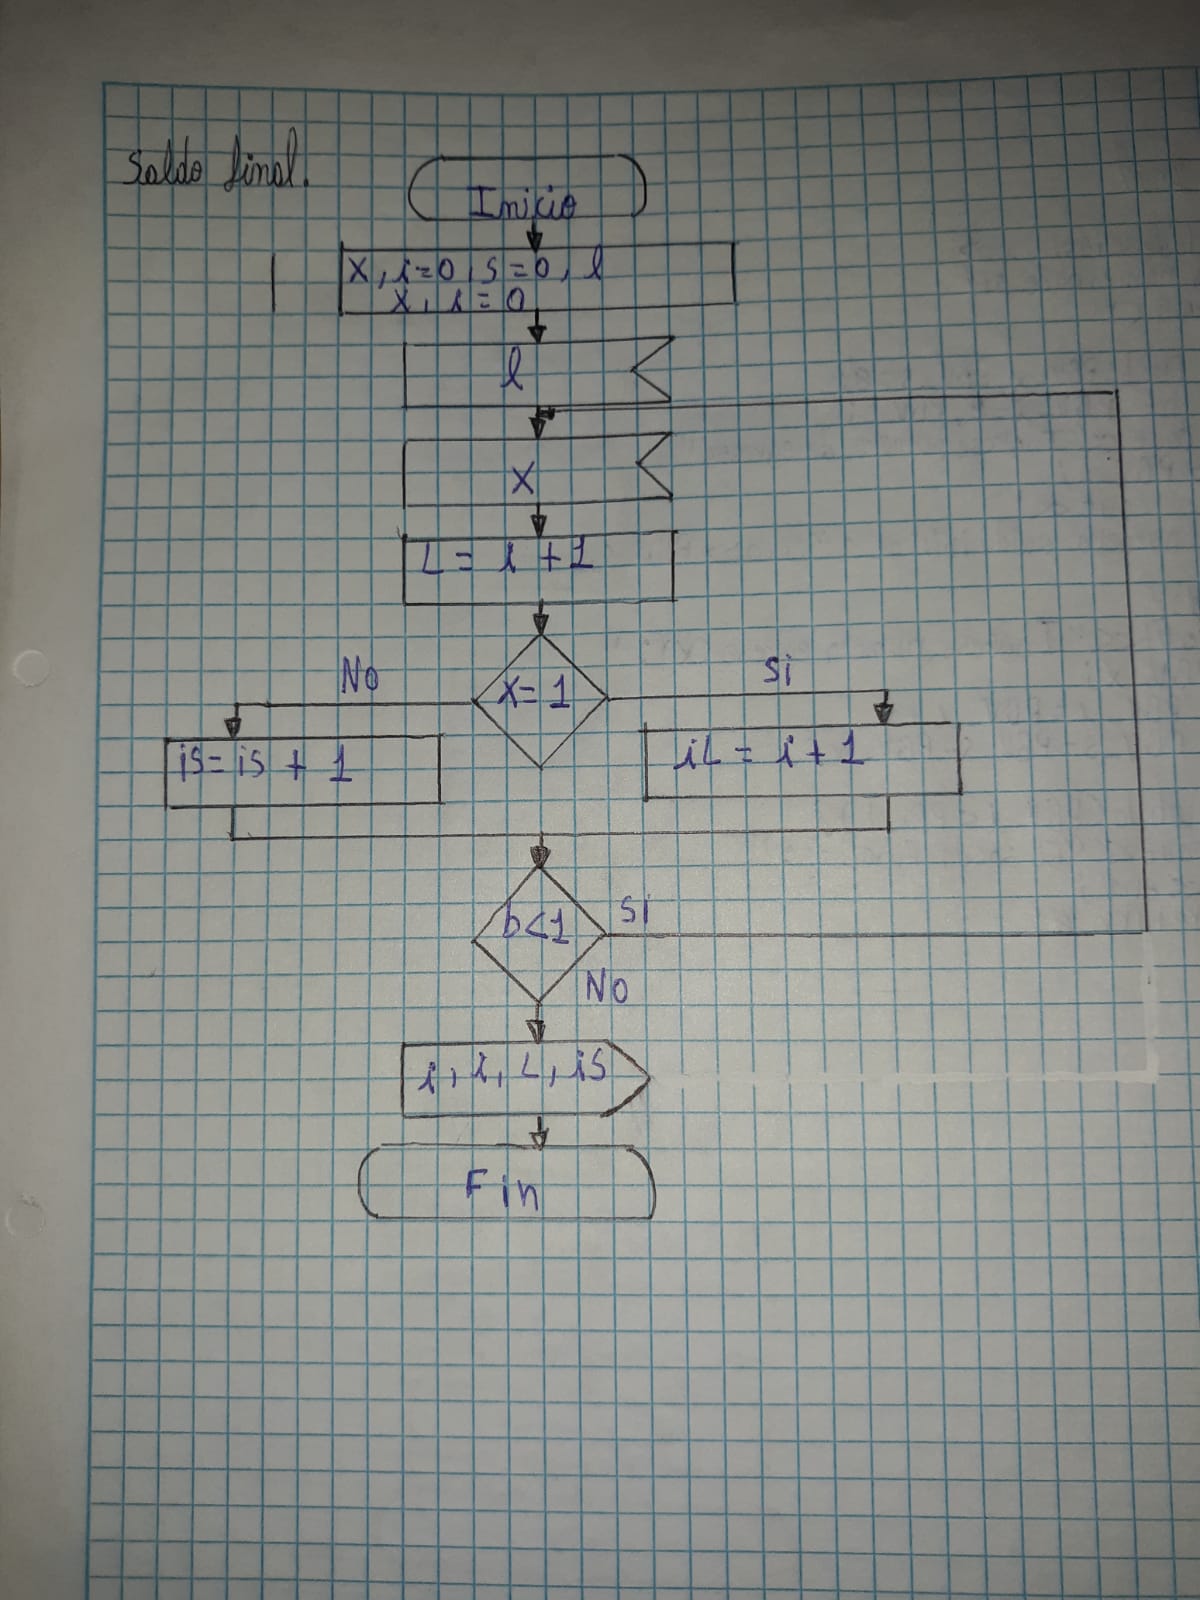 Saldo final.
Inicio
X, i=0, s=0, l
X, i=0
l
X
L = i + 1
No
X= 1
Si
is= is + 1
iL = i + 1
b<1
Si
No
i, i, L, is
Fin